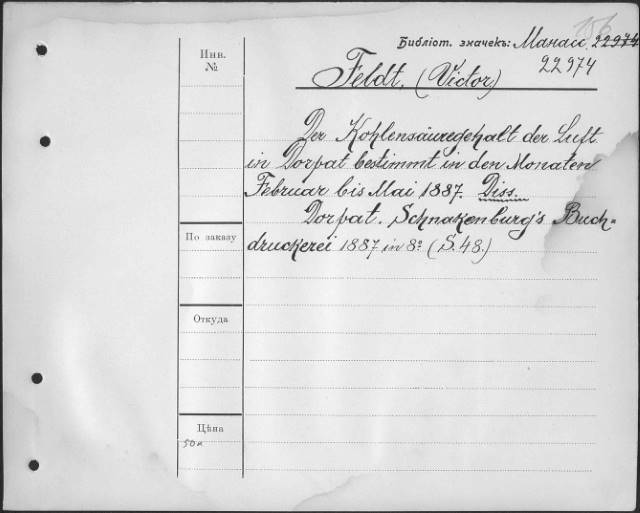 156
Библіот. значекъ: Манасс. 22974
22974
Инв.
№
Feldt. (Victor)
Der Kohlensäuregehalt der Luft
in Dorpat bestimmt in den Monaten
Februar bis Mai 1887. Diss.
Dorpat. Schnakenburg's Buch-
druckerei 1887 in 8º (S. 48.)
По заказу
Откуда
Цѣна
50к